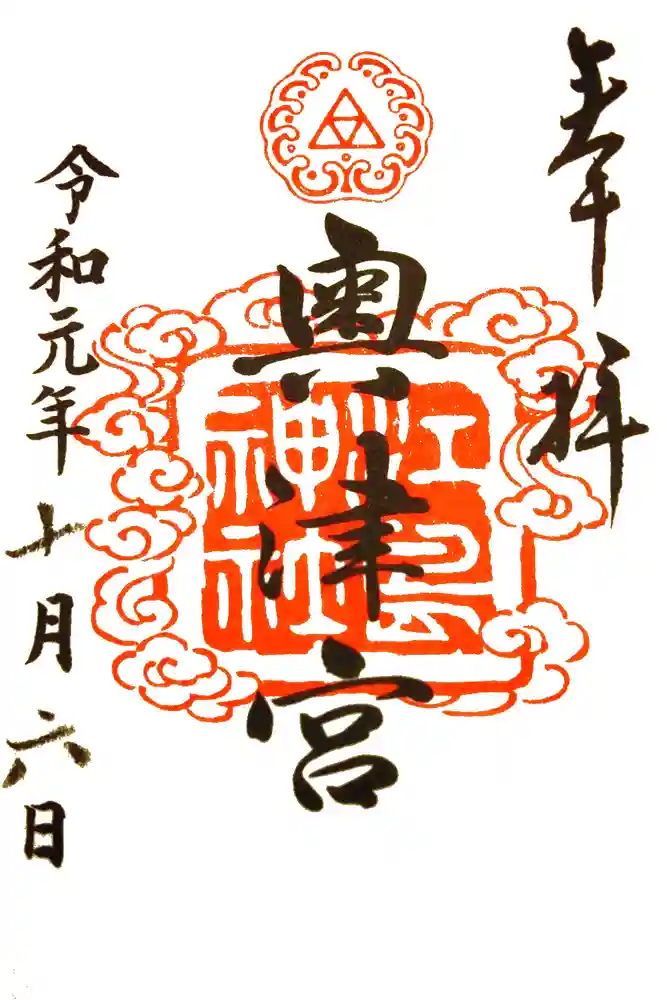 奉拝
奥津宮
江島
神社
令和元年十月六日